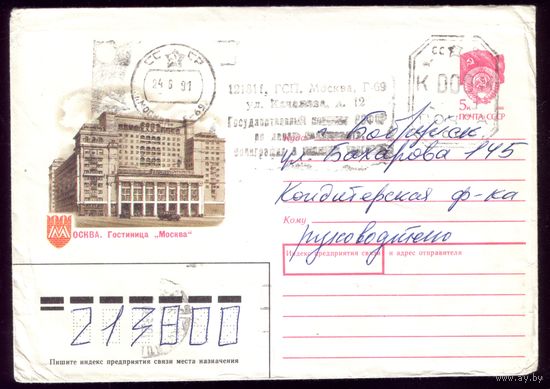 СССР
24 6 91
121019, ГСП, Москва, Г-69
ул. Качалова, д. 12
Государственный
СССР
К 00
5к
ПОЧТА СССР
Куда г. Бобруйск
ул. Бахарова 145
Кондитерская ф-ка
Кому
руководителю
Индекс предприятия связи и адрес отправителя
МОСКВА. Гостиница „Москва“
213800
Пишите индекс предприятия связи места назначения
www.ay.by